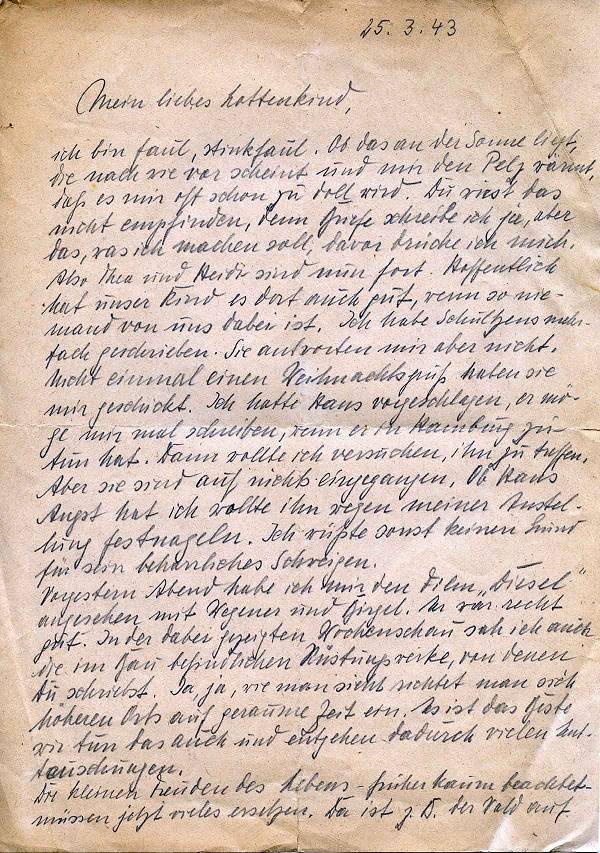 25. 3. 43
Mein liebes Lottenkind,
ich bin faul, stinkfaul. Ob das an der Sonne liegt,
die nach wie vor scheint und mir den Pelz wärmt,
daß es mir oft schon zu doll wird. Du wirst das
nicht empfinden, denn Briefe schreibe ich ja, aber
das, was ich machen soll, davor drücke ich mich.
Also Thea und Heidi sind nun fort. Hoffentlich
hat unser Kind es dort auch gut, wenn so nie-
mand von uns dabei ist. Ich habe Schultzens mehr-
fach geschrieben. Sie antworten mir aber nicht.
Nicht einmal einen Weihnachtsgruß haben sie
mir geschickt. Ich hatte Hans vorgeschlagen, er mö-
ge mir mal schreiben, wenn er in Hamburg zu
tun hat. Dann wollte ich versuchen, ihn zu treffen.
Aber sie sind auf nichts eingegangen. Ob Hans
Angst hat ich wollte ihn wegen meiner Anstel-
lung festnageln. Ich wüßte sonst keinen Grund
für sein beharrliches Schweigen.
Vorgestern Abend habe ich mir den Film „Diesel"
angesehen mit Wegener und Birgel. Er war recht
gut. In der dabei gezeigten Wochenschau sah ich auch
die im Bau befindlichen Rüstungswerke, von denen
Du schriebst. Ja, ja, wie man sieht richtet man sich
höheren Orts auf geraume Zeit ein. Es ist das Beste
wir tun das auch und entgehen dadurch vielen Ent-
täuschungen.
Die kleinen Freuden des Lebens - früher kaum beachtet-
müssen jetzt vieles ersetzen. Da ist z. B. der Wald auf